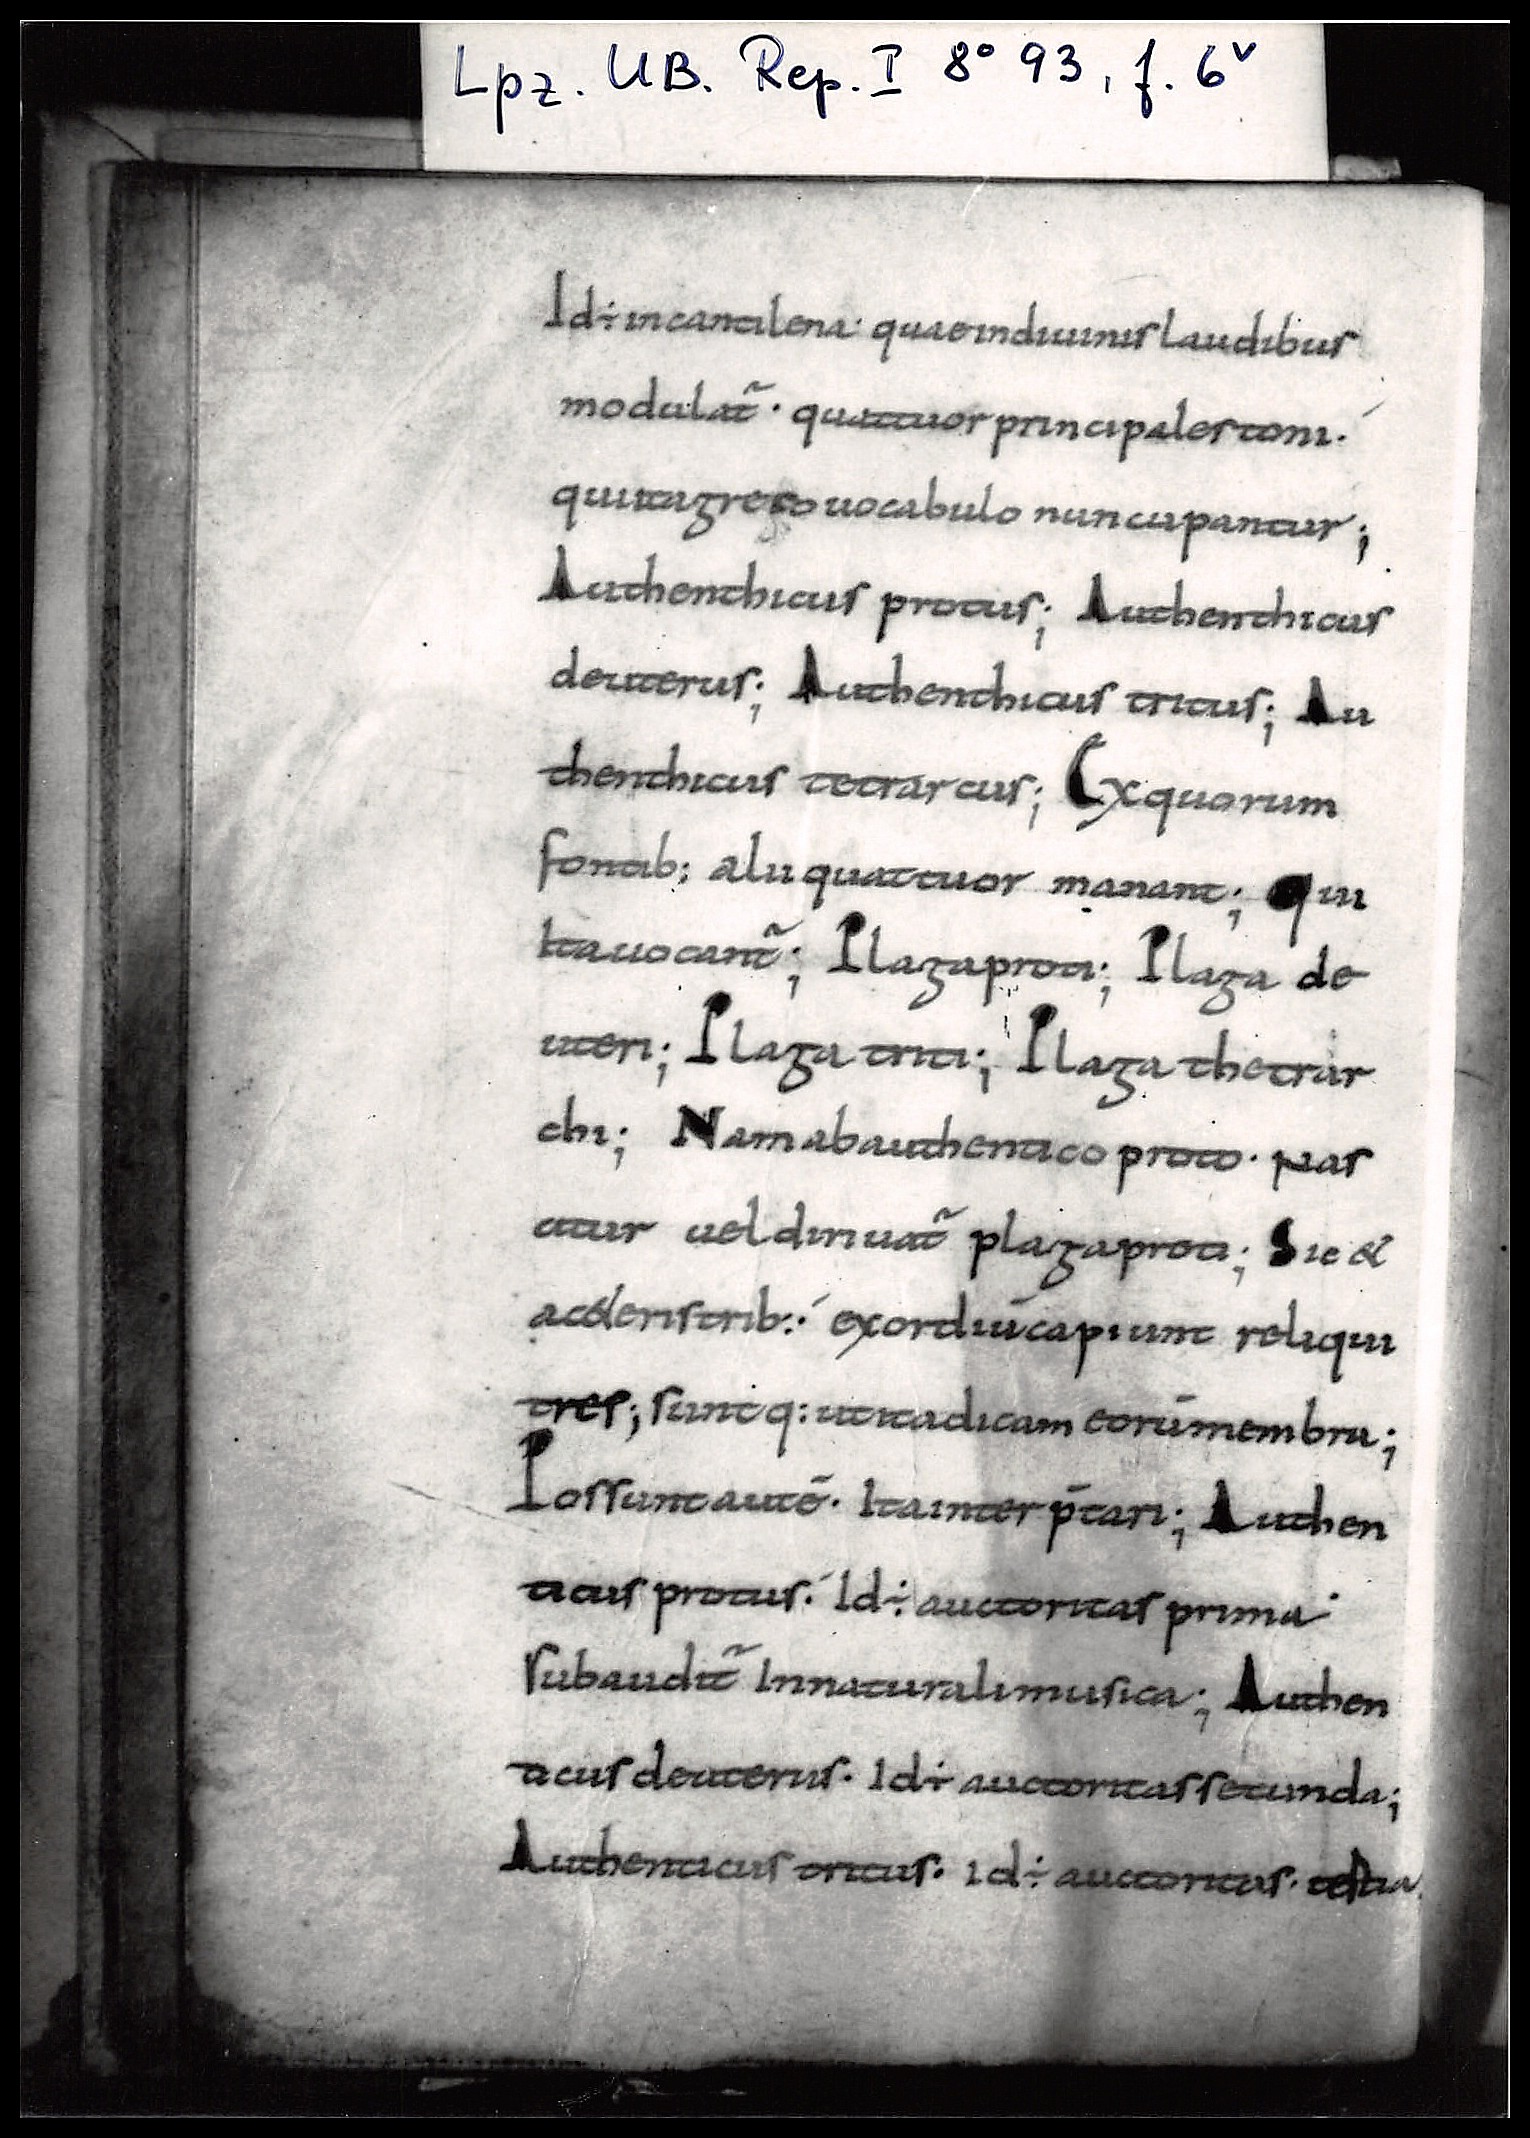 Lpz. UB. Rep. I 8° 93, f. 6v
Id÷ incantilena· quaeindiuinis laudibus
modulat̃· quattuor principales toni·
quiita greco uocabulo nuncupantur;
Authenthicus protus; Authenthicus
deuterus; Authenthicus tritus; Au
thenthicus tetrarcus; Exquorum
fontib; alii quattuor manant; Qui
Ita uocant̃; Plagaproti; Plaga de
uteri; Plaga triti; Plaga thetrar
chi; Namabauthentico proto· Nas
citur uel diriuat̃ plagaproti; Sic &
acęteris trib:· exordiū capiunt reliqui
tres; suntq: utitadicam eorū membra;
Possunt autē· Ita inter p̄tari; Authen
ticus protus· Id÷ auctoritas prima·
subaudit̃ Innaturalimusica; Authen
ticus deuterus· Id÷ auctoritas secunda;
Authenticus tritus· id÷ auctoritas· tertia.